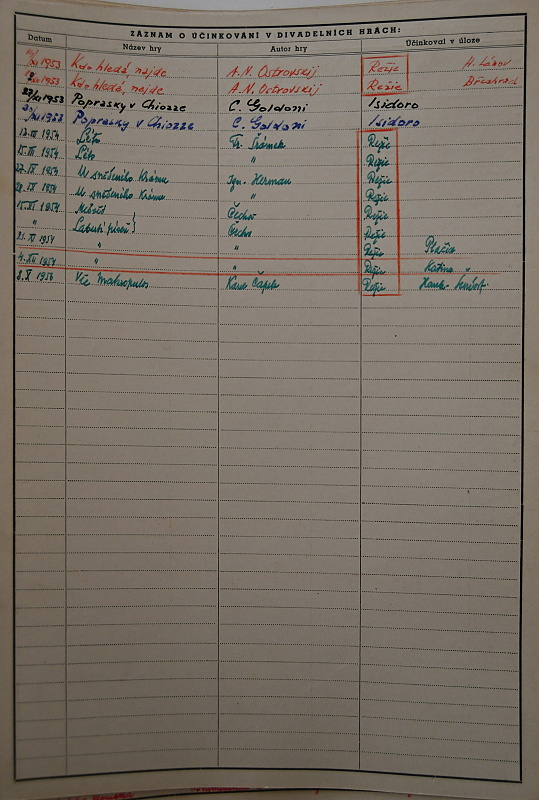 ZÁZNAM O ÚČINKOVÁNÍ V DIVADELNÍCH HRÁCH:
Datum Název hry Autor hry Účinkoval v úloze
1953 Kdo hledá, najde A. N. Ostrovskij Režie H. Lázov
1953 Kdo hledá, najde A. N. Ostrovskij Režie
1953 Poprasky v Chiozze C. Goldoni Isidoro
Poprasky v Chiozze C. Goldoni Isidoro
1954 Léto Fr. Šrámek Režie
1954 Léto " Režie
1954 U sněženého Krámu Ign. Herman Režie
1954 U sněženého Krámu Režie
1954 Čechov Režie
" Labutí píseň Čechov Režie
21. 1954 " " Režie
4. XII 1954 " " Režie
8. X 1956 Věc Makropulos Karel Čapek Režie